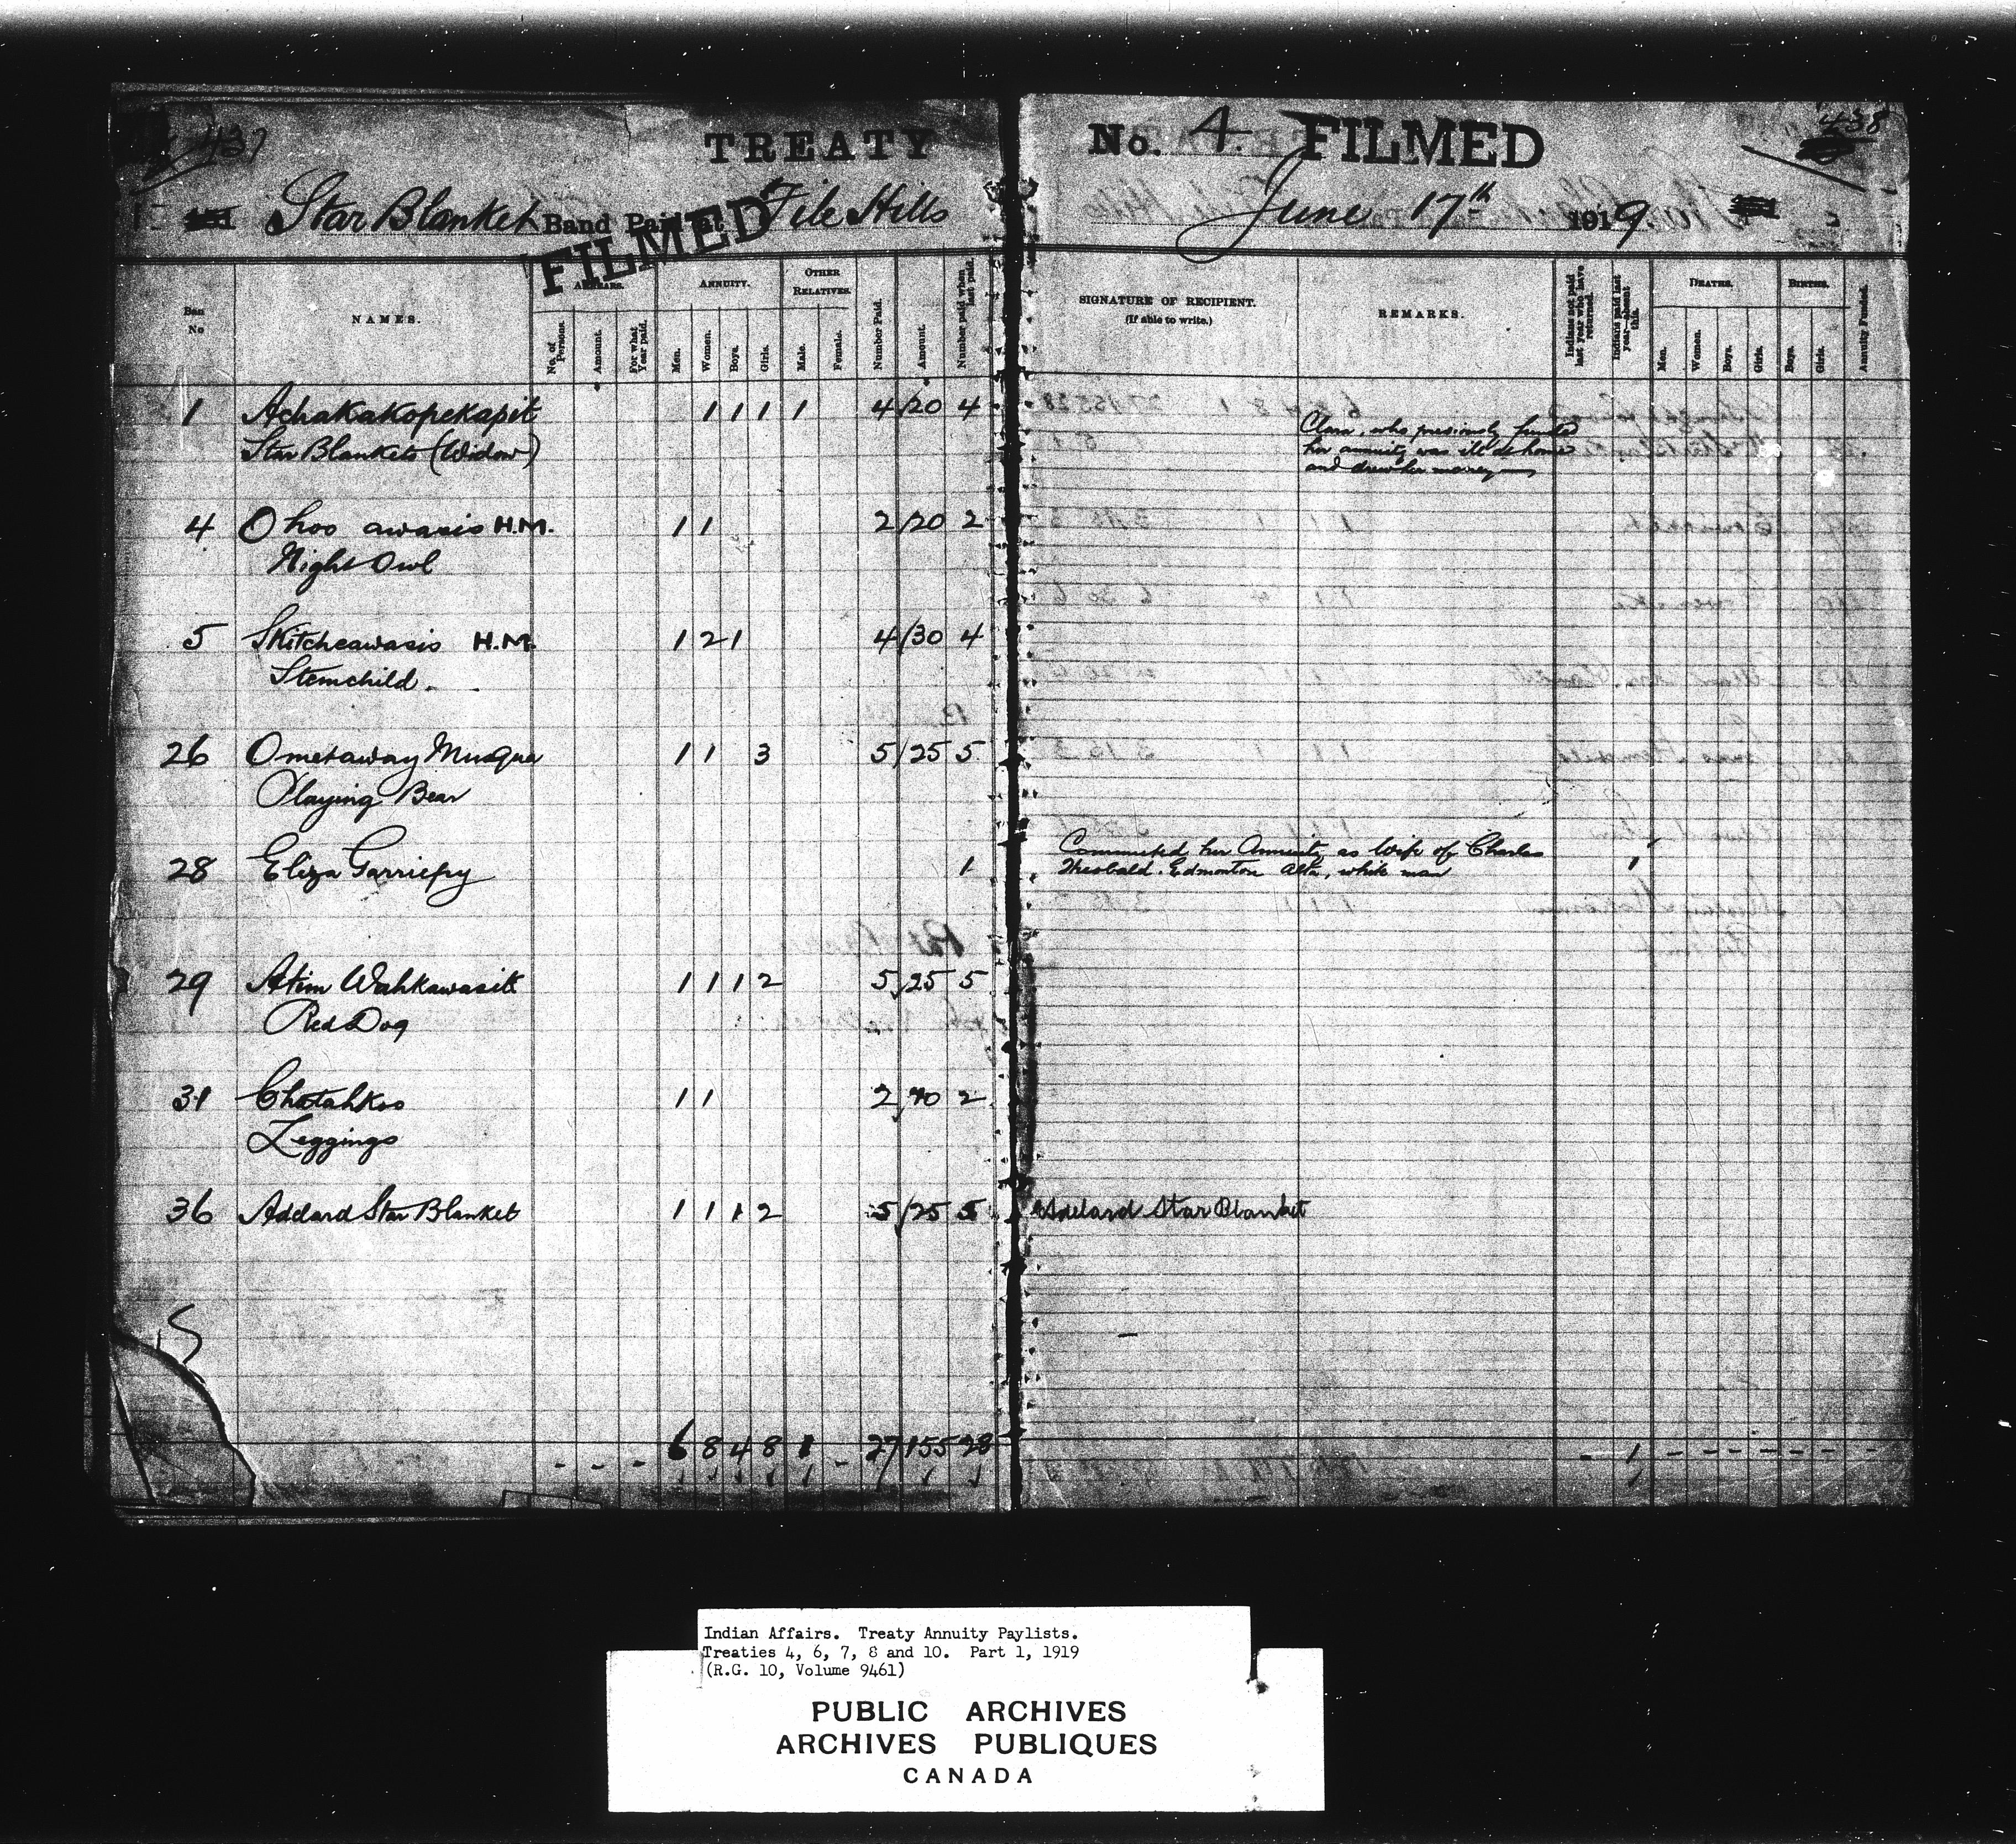 437
TREATY
No. 4. FILMED
438
Star Blanket Band Paid at File Hills
FILMED
June 17th 1919.
Ban No
NAMES.
ARREARS.
No. of Persons.
Amount.
For what Year paid.
ANNUITY.
Men.
Women.
Boys.
Girls.
OTHER RELATIVES.
Male.
Female.
Number Paid.
Amount.
Number paid when last paid.
SIGNATURE OF RECIPIENT.
(If able to write.)
REMARKS.
Indians not paid last year who have returned.
Indians paid last year—absent this.
DEATHS.
Men.
Women.
Boys.
Girls.
BIRTHS.
Boys.
Girls.
Annuity Funded.
1 Achakakopekapit 1 1 1 1 4 /20 4
Star Blankets (Widow)
Clara, who previously funded
her annuity was ill at home
and drew her money
4 Ohoo awasis H.M. 1 1 2 /20 2
Night Owl
5 Skitcheawasis H.M. 1 2 1 4 /30 4
Stemchild.
26 Ometaway Musqua 1 1 3 5 /25 5
Playing Bear
28 Eliza Garriepy 1
Commuted her Annuity as Wife of Charles 1
Theobald. Edmonton Alta, white man
29 Atim Wahkawasik 1 1 1 2 5 /25 5
Red Dog
31 Chatahkos 1 1 2 /10 2
Leggings
36 Adelard Star Blanket 1 1 1 2 5 /25 5 Adelard Star Blanket
- - - 6 8 4 8 1 - 27 155 28 - 1 - - - - - - -
Indian Affairs. Treaty Annuity Paylists.
Treaties 4, 6, 7, 8 and 10. Part 1, 1919
(R.G. 10, Volume 9461)
PUBLIC ARCHIVES
ARCHIVES PUBLIQUES
CANADA